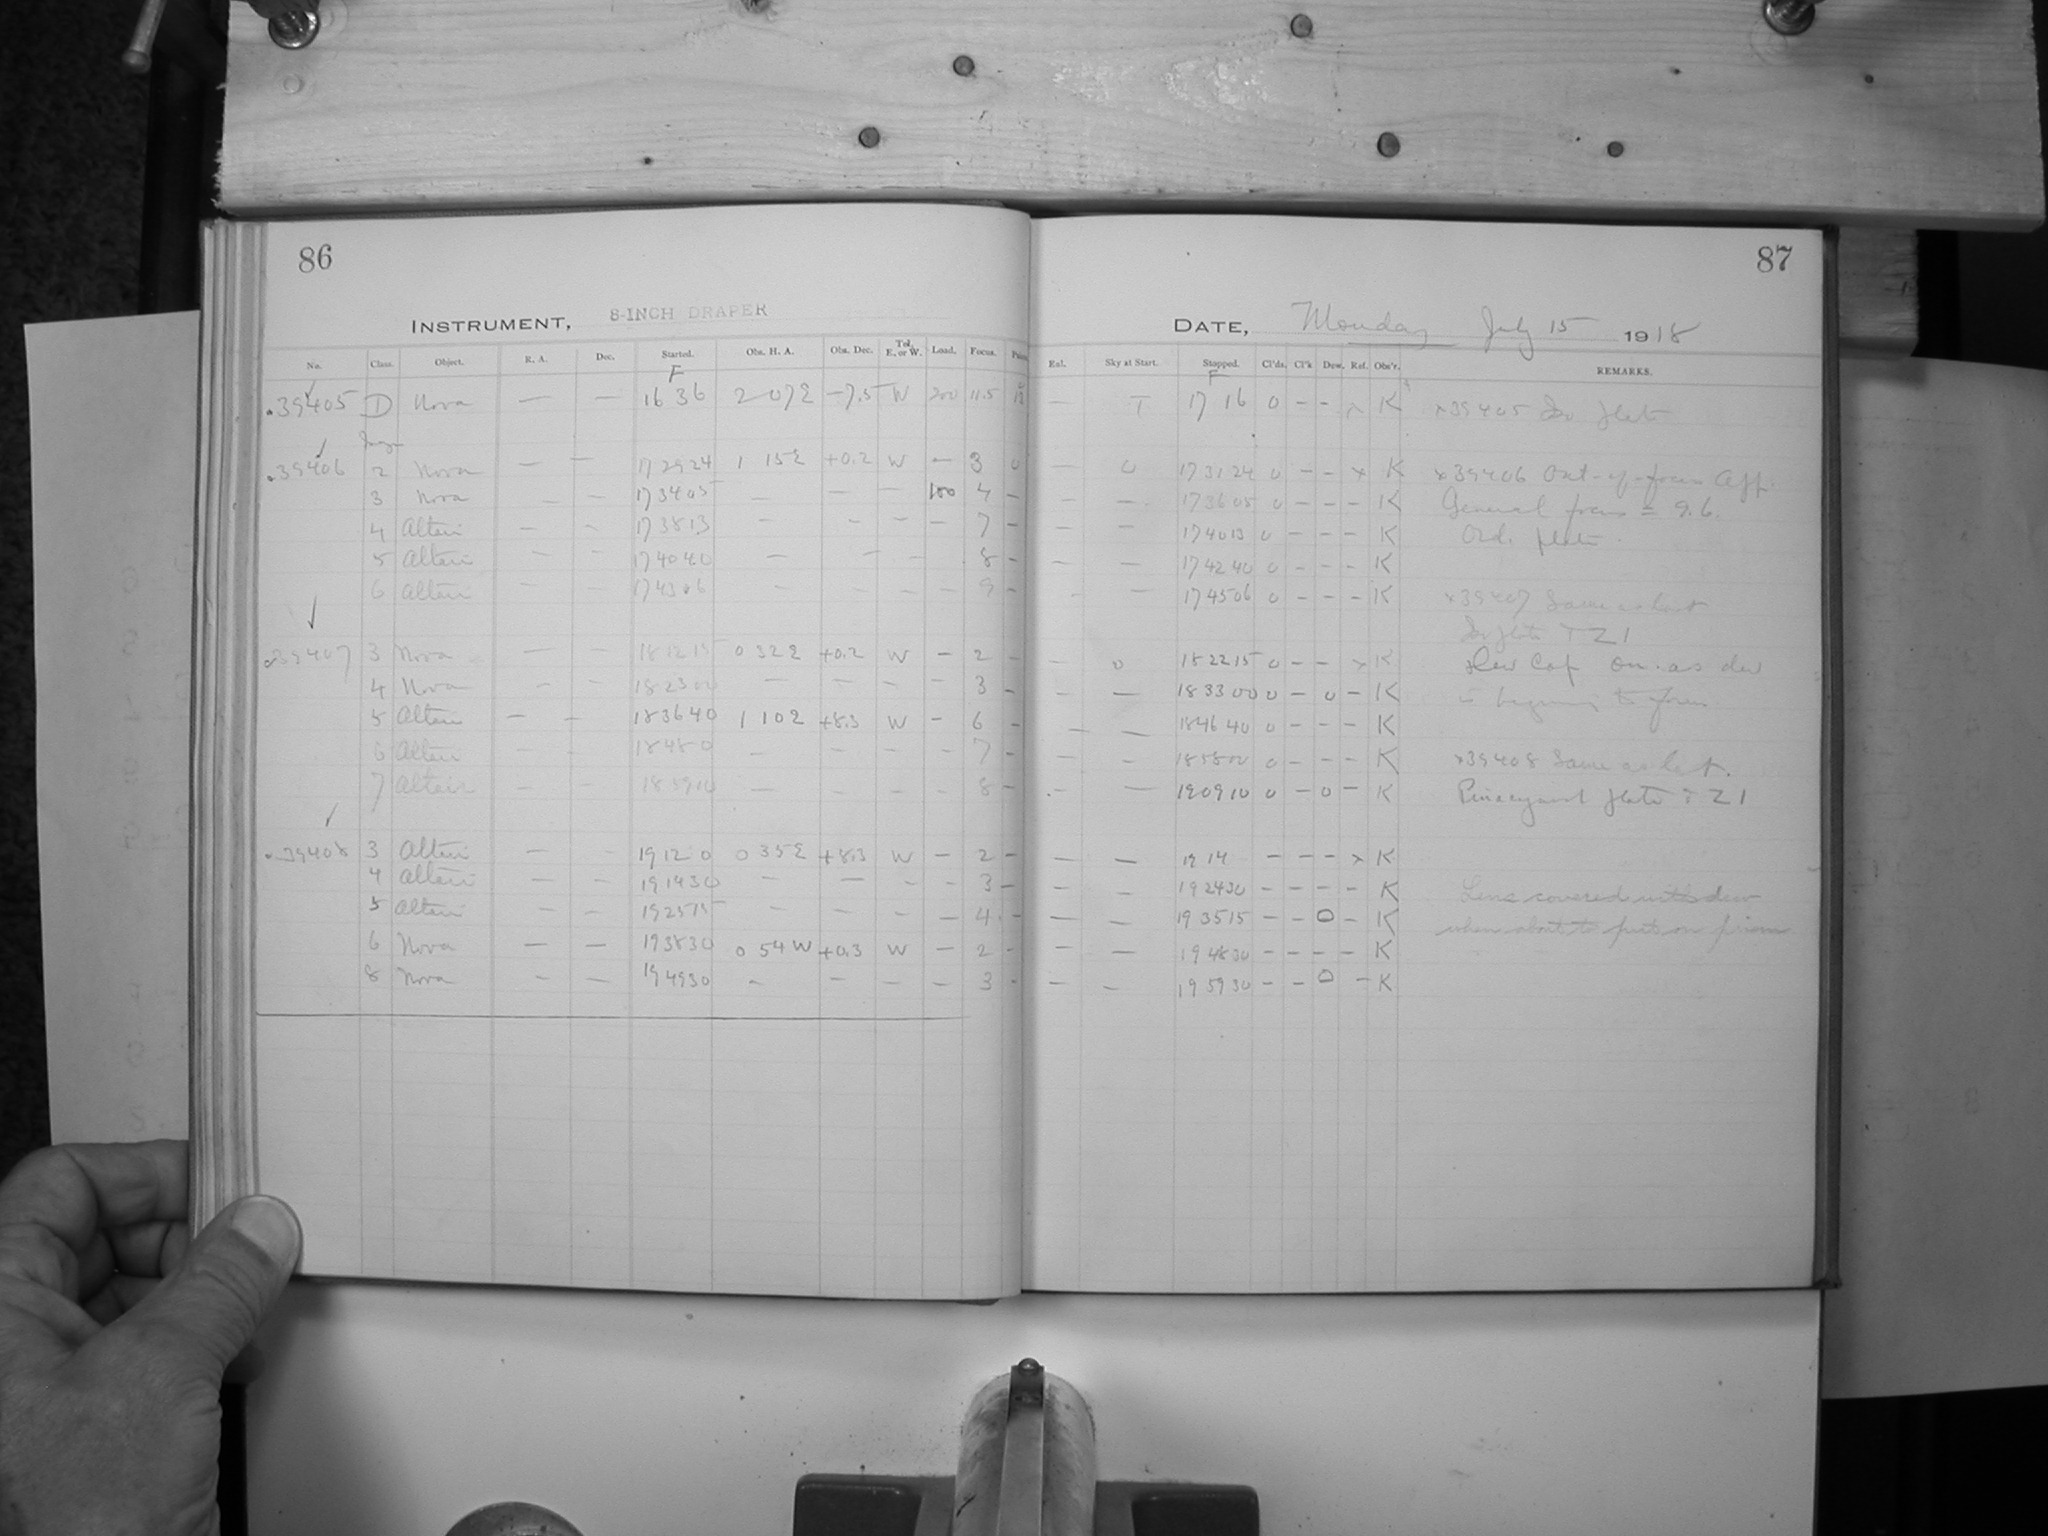 86
87
INSTRUMENT, 8-INCH DRAPER
DATE, Monday July 15 1918
No. Class. Object. R. A. Dec. Started. Obs. H. A. Obs. Dec. Tel. E. or W. Load. Focus. Exl. Sky at Start. Stopped. Cl'ds. Cl'k Dew. Ref. Obs'r. REMARKS.
F F
.39405 D Nova — — 16 36 2 07 E -7.5 W 200 11.5 — T 17 16 0 - - x K x39405 Iso plate
Image
.39406 2 Nova — — 17 29 24 1 15 E +0.2 W — 3 0 — 0 17 31 24 0 - - x K x39406 Out-of-focus App.
3 Nova — — 17 34 05 — — — 100 4 - — — 17 36 05 0 - - - K General focus = 9.6.
4 Altair — — 17 38 13 — — — — 7 - — — 17 40 13 0 - - - K Ord. plate.
5 Altair — — 17 40 40 — — — 8 - — — 17 42 40 0 - - - K
6 Altair — — 17 43 06 — — — — 9 - - — 17 45 06 0 - - - K x39407 Same as last
Iso plate + Z1
.39407 3 Nova — — 18 12 15 0 32 E +0.2 W — 2 - — 0 18 22 15 0 - - x K Dew Cap on as dew
4 Nova — — 18 23 00 — — — — 3 - — — 18 33 00 0 - 0 - K is beginning to form
5 Altair — — 18 36 40 1 10 E +8.3 W — 6 - — — 18 46 40 0 - - - K
6 Altair — — 18 48 0 — — — — 7 - — — 18 58 00 0 - - - K x39408 Same as last.
7 Altair — — 18 59 10 — — — — 8 - — — 19 09 10 0 - 0 - K plate + Z1
.39408 3 Altair — — 19 12 0 0 35 E +8.3 W — 2 - — — 19 14 - - - x K
4 Altair — — 19 14 30 — — — — 3 - — — 19 24 30 - - - - K Lens covered with dew
5 Altair — — 19 25 15 — — — — 4 - — — 19 35 15 - - 0 - K when about to put on prism
6 Nova — — 19 38 30 0 54 W +0.3 W — 2 - — — 19 48 30 - - - - K
8 Nova — — 19 49 30 — — — — 3 - — — 19 59 30 - - 0 - K